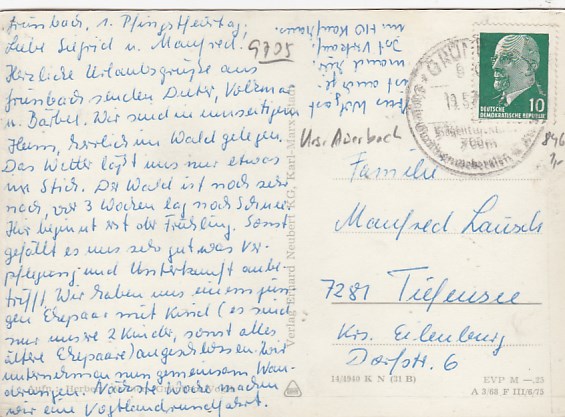 Grünbach, 1. Pfingstfeiertag,
Liebe Sigfrid u. Manfred.
Herzliche Urlaubsgrüße aus
Grünbach senden Dieter, Volkmar
u. Bärbel. Wir sind in unserem
Heim, herrlich im Wald gelegen.
Das Wetter läßt uns nur etwas
im Stich. Der Wald ist noch sehr
naß, vor 3 Wochen lag noch Schnee.
Hier beginnt erst der Frühling. Sonst
gefällt es uns sehr gut was Ver-
pflegung und Unterkunft anbe-
trifft. Wir haben uns einem jün-
gen Ehepaar mit Kind (es sind
nur unsere 2 Kinder, sonst alles
ältere Ehepaare) angeschlossen. Wir
unternehmen nun gemeinsam Wan-
derungen. Nächste Woche machen
wir eine Vogtlandrundfahrt.
G705
Krs. Auerbach
Verlag Erhard Neubert KG, Karl-Marx-Stadt
DEUTSCHE
DEMOKRATISCHE REPUBLIK
10
Familie
Manfred Lausch
7281 Tiefensee
Krs. Eilenburg
Dorfstr. 6
14/1949 K N (31 B)
EVP M —,25
A 3/68 F III/6/75